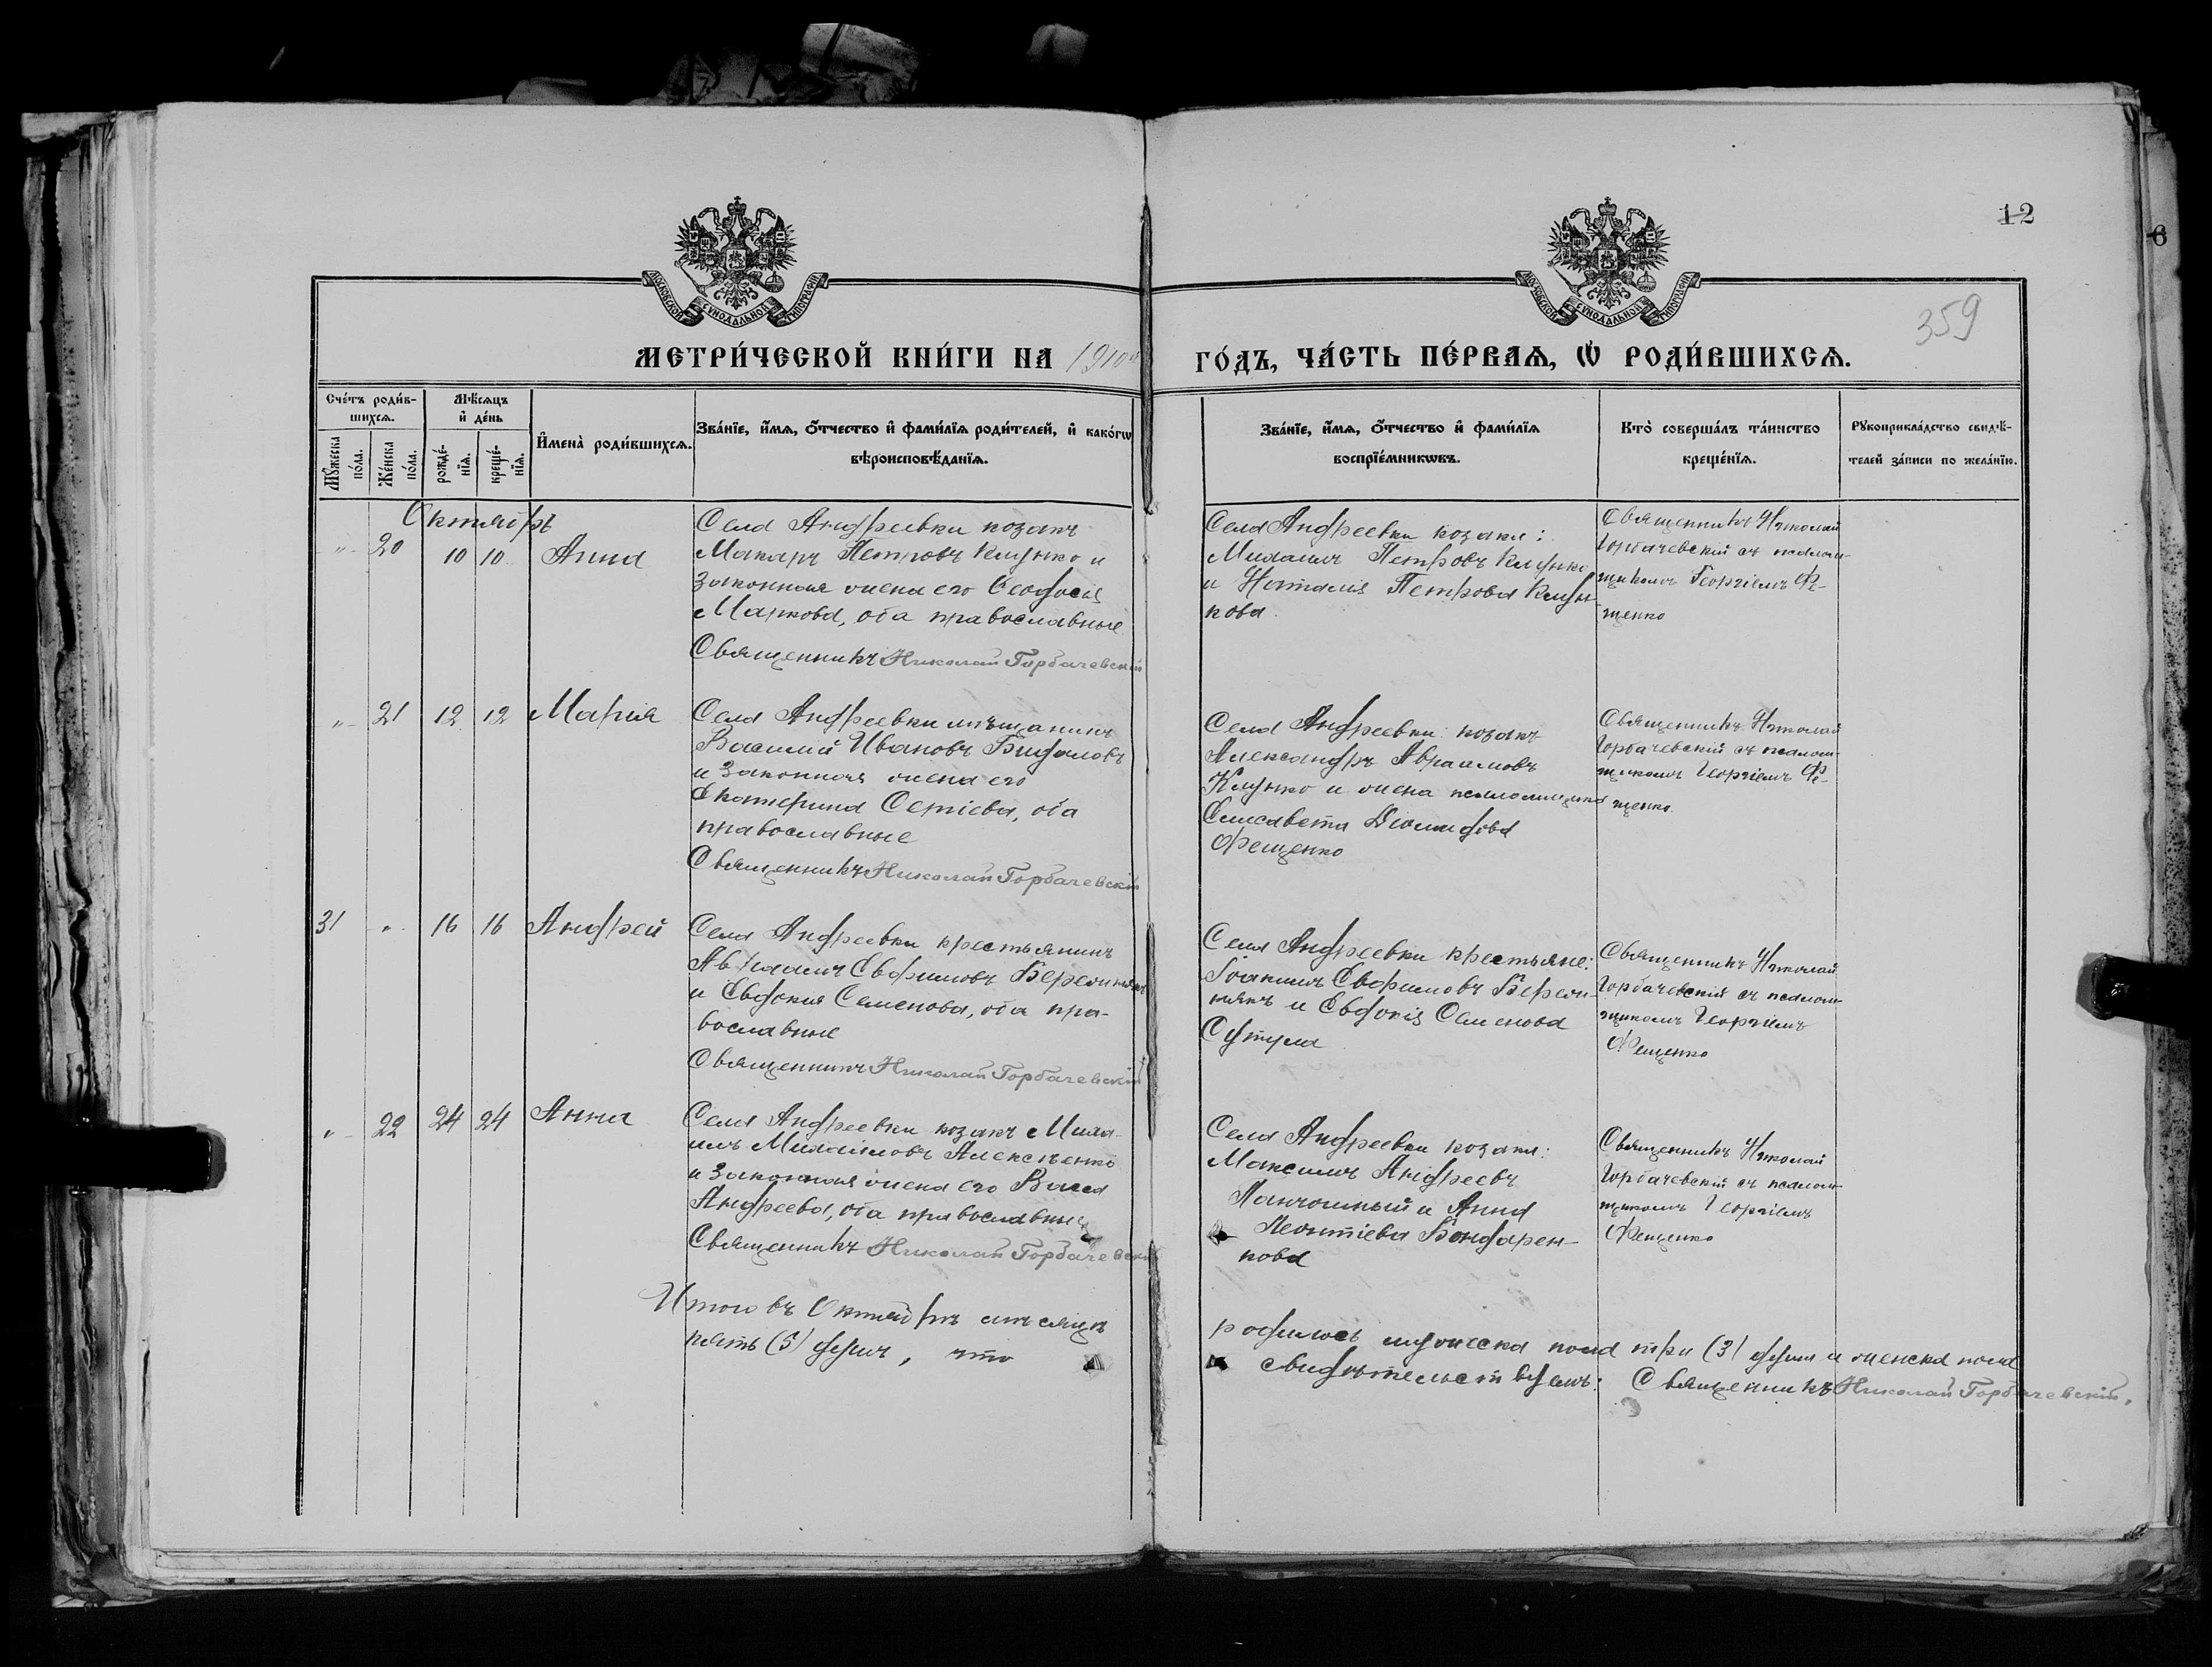 12
6
359
МОСКОВСКОЙ СѴНОДАЛЬНОЙ ТИПОГРАФІИ
МОСКОВСКОЙ СѴНОДАЛЬНОЙ ТИПОГРАФІИ
МЕТРИ́ЧЕСКОЙ КНИ́ГИ НА 1910й ГО́ДЪ, ЧА́СТЬ ПЕ́РВАѦ, Ѡ РОДИ́ВШИХСѦ.
Сче́тъ роди́в-
шихсѧ.
Мѣ́сѧцъ
и҆ де́нь
Мꙋ́жеска
по́ла.
Же́нска
по́ла.
рожде́-
нїѧ.
креще́-
нїѧ.
И҆мена̀ роди́вшихсѧ.
Зва́нїе, и҆́мѧ, ѻ҆́тчество и҆ фами́лїѧ роди́телей, и҆ како́гѡ
вѣроисповѣ́данїѧ.
Зва́нїе, и҆́мѧ, ѻ҆́тчество и҆ фами́лїѧ
воспрїе́мникѡвъ.
Кто̀ соверша́лъ та́инство
креще́нїѧ.
Рꙋкоприкла́дство свидѣ́-
телей за́писи по жела́нїю.
Октябрь
"
20
10
10
Анна
Села Андреевки козакъ
Макаръ Петровъ Клунко и
законная жена его Ѳеодосія
Маркова, оба православные
Священникъ Николай Горбачевскій
Села Андреевки козаки:
Михаилъ Петровъ Клунко
и Наталія Петрова Клун-
кова
Священникъ Николай
Горбачевскій съ псалом-
щикомъ Георгіемъ Фе-
щенко
"
21
12
12
Марія
Села Андреевки мѣщанинъ
Василій Ивановъ
и законная жена его
Екатерина Сергіева, оба
православные
Священникъ Николай Горбачевскій
Села Андреевки: козакъ
Александръ Авраамовъ
Клунко и жена псаломщика
Елисавета Діомидова
Фещенко
Священникъ Николай
Горбачевскій съ псалом-
щикомъ Георгіемъ Фе-
щенко.
31
"
16
16
Андрей
Села Андреевки крестьянинъ
Евфимовъ
и Евдокія Семенова, оба пра-
вославные
Священникъ Николай Горбачевскій
Села Андреевки крестьяне:
Іоакимъ Евфимовъ Береж-
някъ и Евдокія Семенова
Сутула
Священникъ Николай
Горбачевскій съ псалом-
щикомъ Георгіемъ
Фещенко
"
22
24
24
Анна
Села Андреевки козакъ Миха-
илъ Михаиловъ Алексѣенко
и законная жена его Васса
Андреева, оба православные
Священникъ Николай Горбачевскій
Села Андреевки козаки:
Максимъ Андреевъ
и Анна
Леонтіева Бондарен-
кова
Священникъ Николай
Горбачевскій съ псалом-
щикомъ Георгіемъ
Фещенко
Итого въ Октябрѣ мѣсяцѣ родилось мужеска пола три (3) души и женска пола
пять (5) душъ, что свидѣтельствуемъ: Священникъ Николай Горбачевскій.